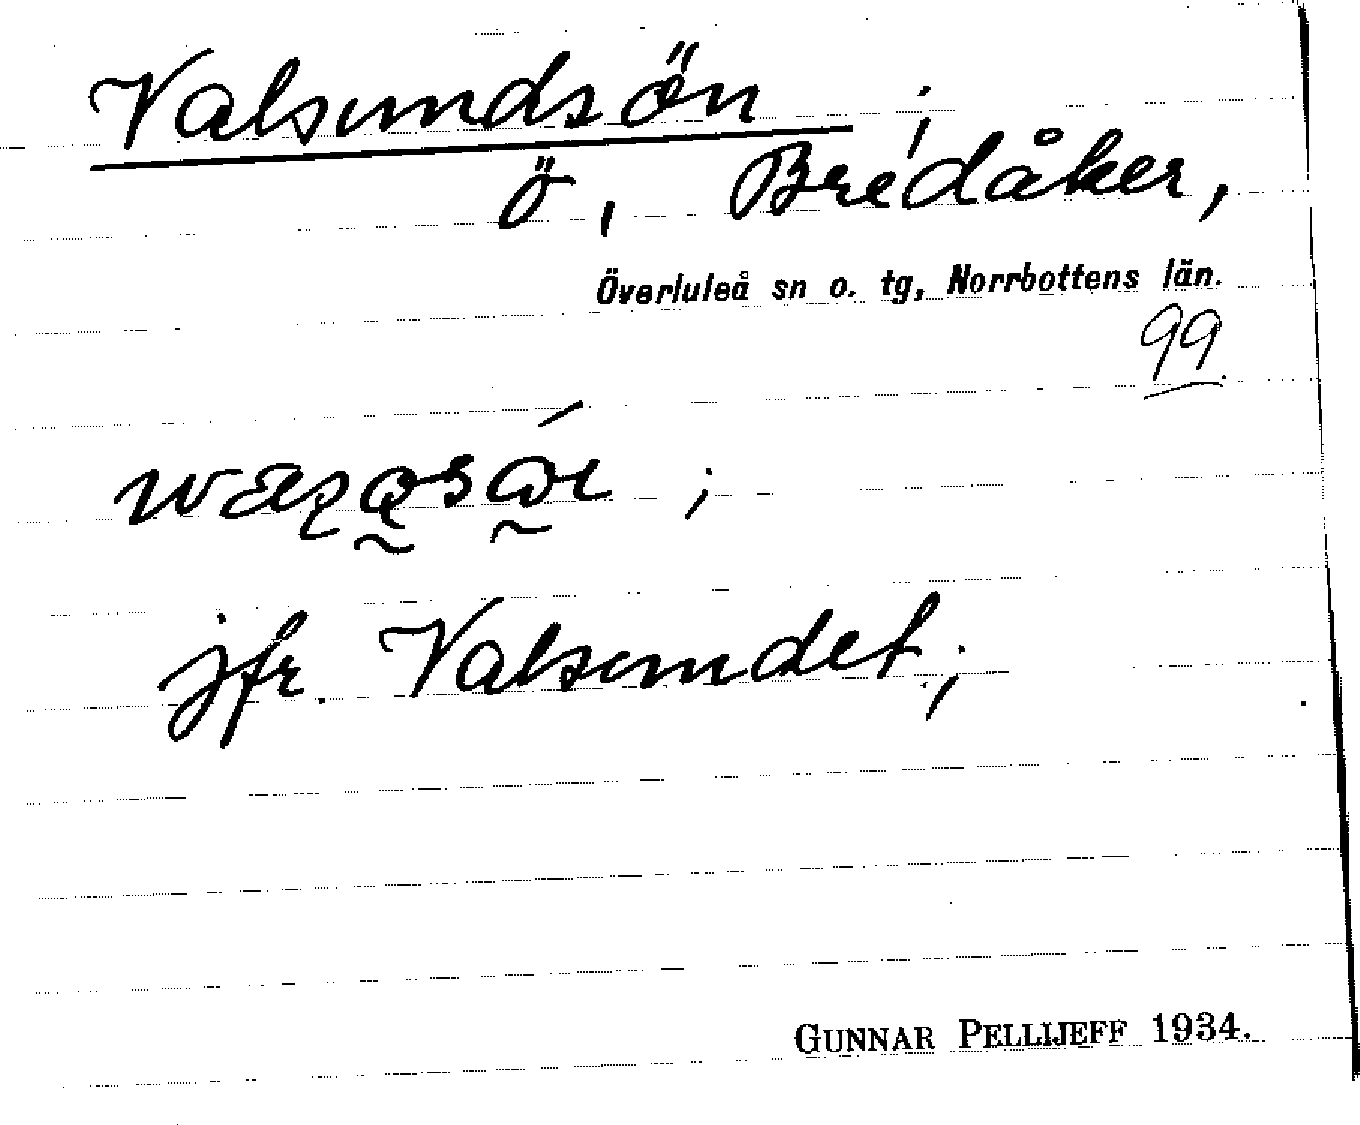 Valsundsön ;
ö, Bredåker,
Överluleå sn o. tg, Norrbottens län.
99
jfr. Valsundet;
GUNNAR PELLIJEFF 1934.